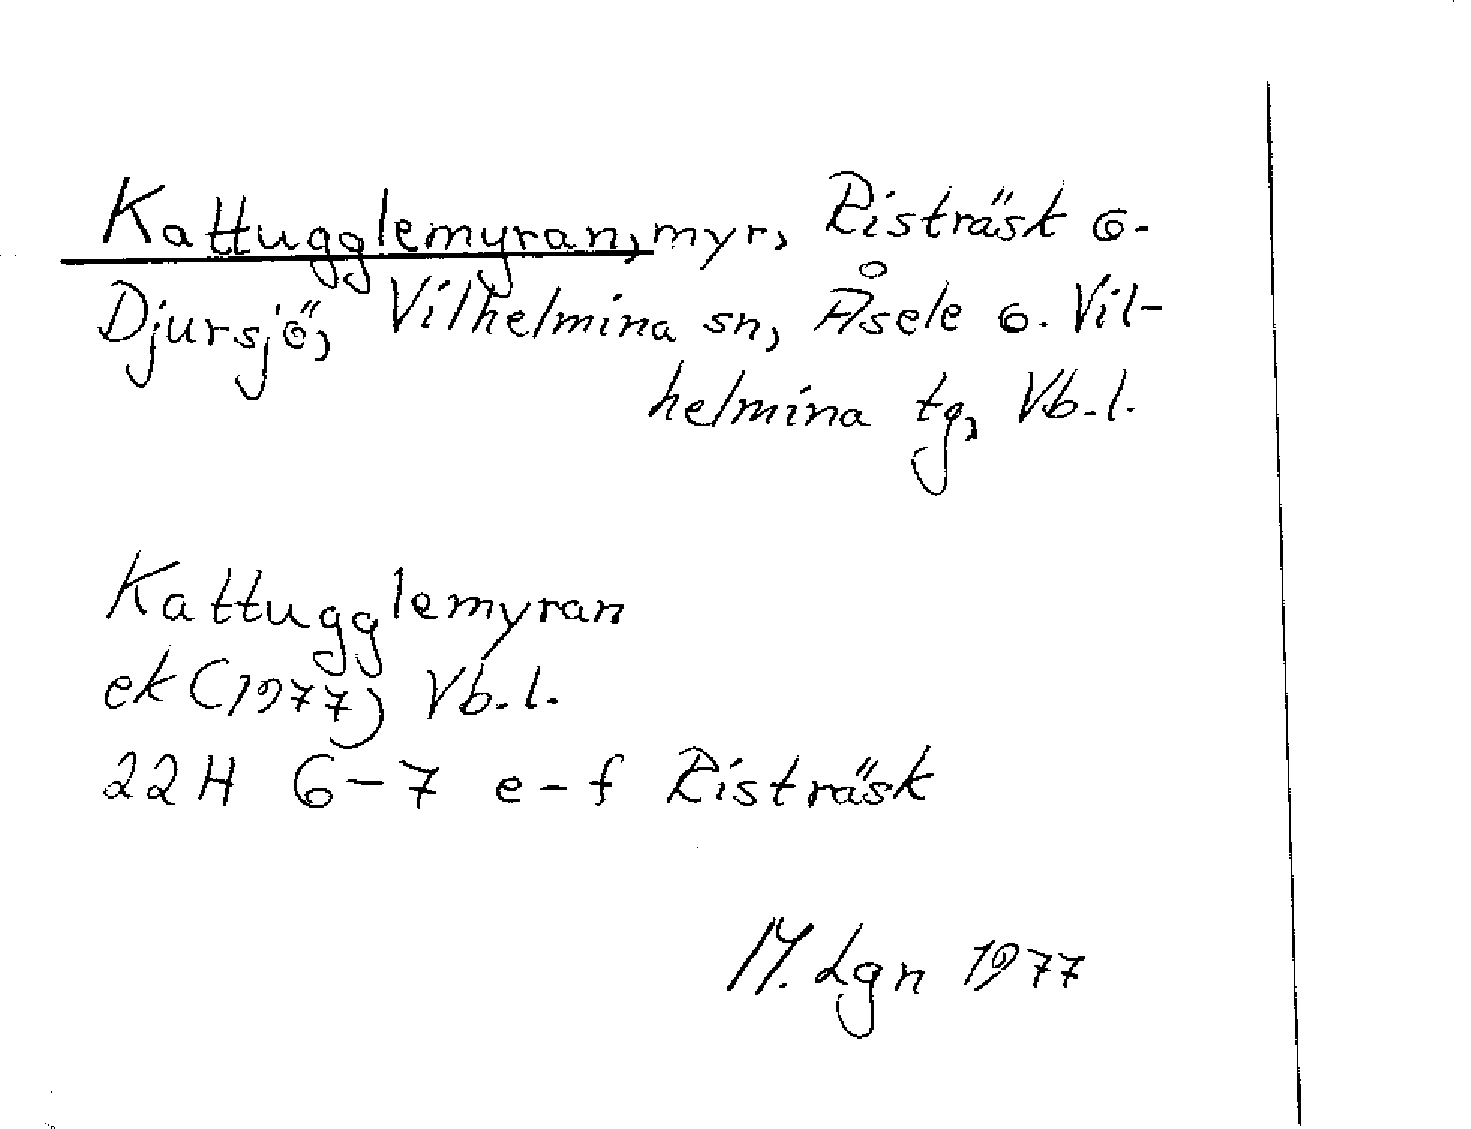 Kattugglemyran, myr, Risträsk o.
Djursjö, Vilhelmina sn, Åsele o. Vil-
helmina tg, Vb.l.
Kattugglemyran
ek (1977) Vb.l.
22H 6-7 e-f Risträsk
M. Lgn 1977